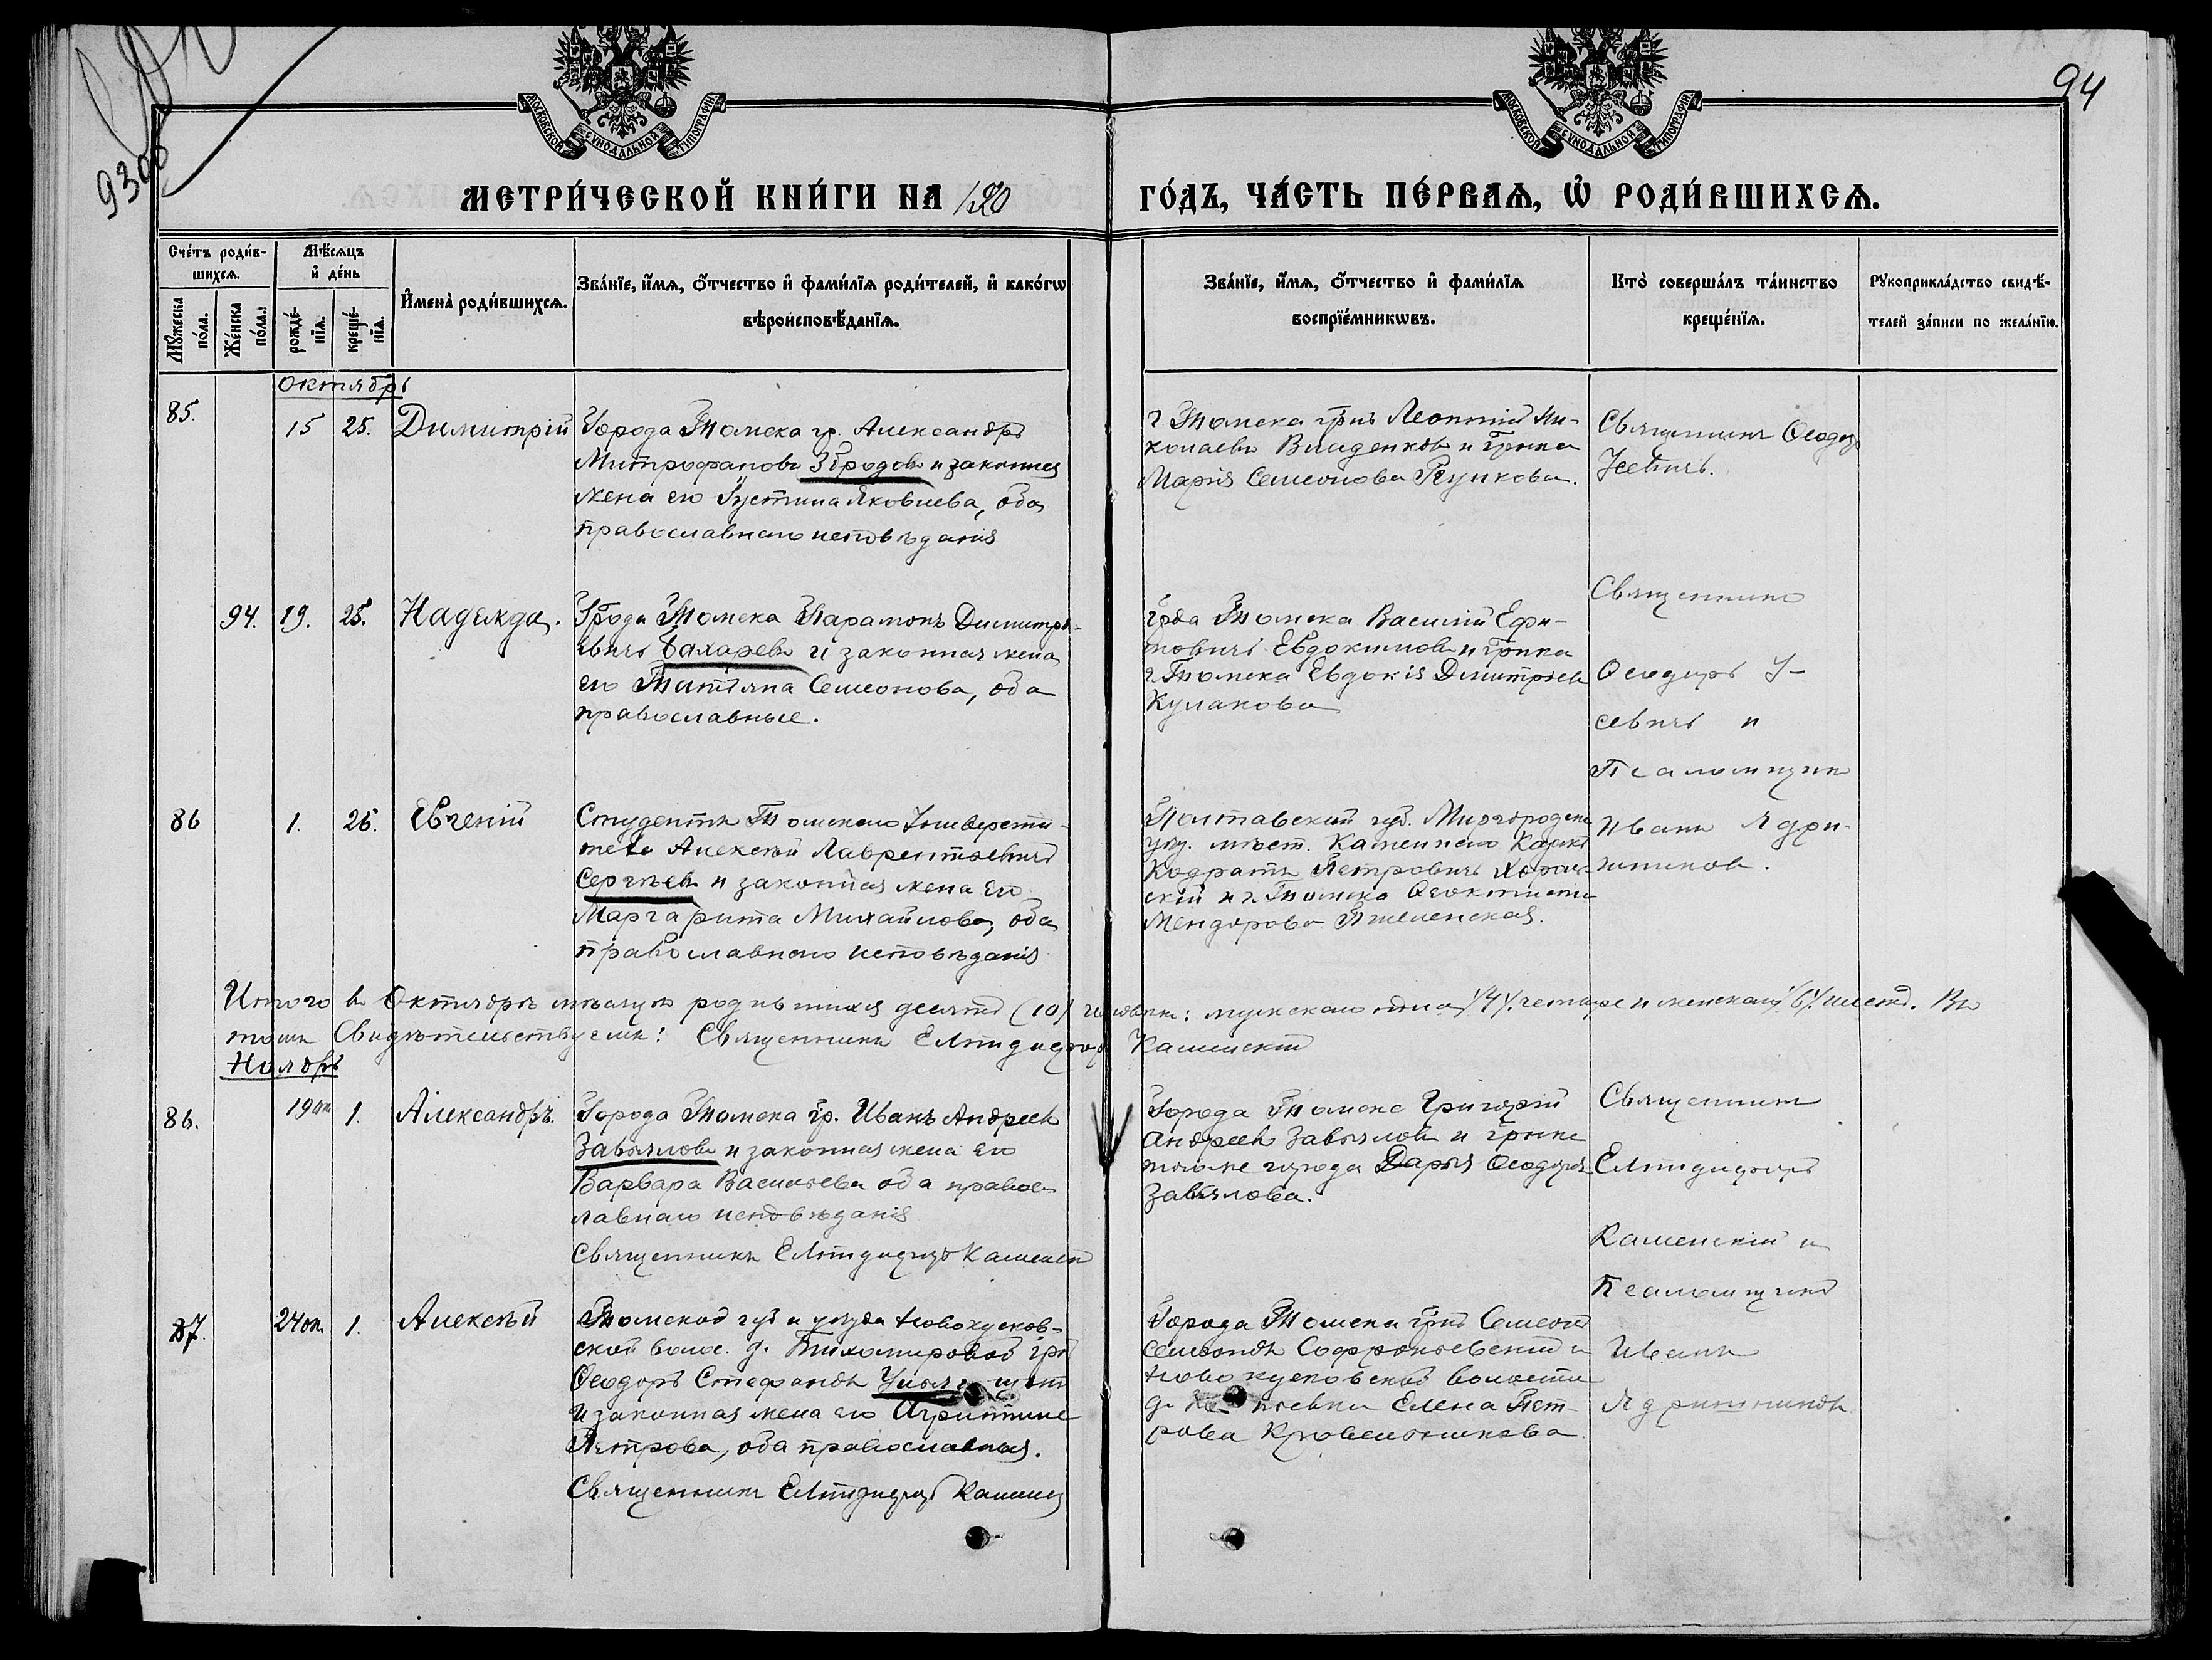 94
930об
МОСКОВСКОЙ СѴНОДАЛЬНОЙ ТИПОГРАФІИ
МОСКОВСКОЙ СѴНОДАЛЬНОЙ ТИПОГРАФІИ
МЕТРИ́ЧЕСКОЙ КНИ́ГИ НА 1920
ГО́ДЪ, ЧА́СТЬ ПЕ́РВАѦ, Ѡ҆ РОДИ́ВШИХСѦ.
Сче́тъ роди́в-
шихсѧ.
Мꙋ́жеска по́ла.
Же́нска по́ла.
Мѣ́сѧцъ
и҆ де́нь
рожде́-
нїѧ.
креще́-
нїѧ.
И҆мена̀ роди́вшихсѧ.
Зва́нїе, и҆́мѧ, ѻ҆́тчество и҆ фами́лїѧ роди́телей, и҆ како́гѡ
вѣроисповѣ́данїѧ.
Зва́нїе, и҆́мѧ, ѻ҆́тчество и҆ фами́лїѧ
воспрїе́мникѡвъ.
Кто̀ соверша́лъ та́инство
креще́нїѧ.
Рꙋкоприкла́дство свидѣ́-
телей за́писи по жела́нїю.
Октябрь
85.
15 25. Димитрій
Города Томска гр. Александръ
Митрофановъ и законная
жена его Іустина Яковлева, оба
православнаго исповѣданія
г. Томска грнъ Леонтій Ни-
колаевъ и гржка
Марія Семеонова
Священникъ Ѳеодоръ
94. 19. 25. Надежда.
Города Томска Парамонъ Димитрі-
евичъ Бахаревъ и законная жена
его Татіяна Семеонова, оба
православные.
Томска Василій Ефи-
мовичъ Евдокимовъ и гржка
г. Томска Евдокія Димитріев
Кулакова
Священникъ
Ѳеодоръ У-
севичъ и
Псаломщикъ
Иванъ Ядри-
шниковъ.
86 1. 26. Евгеній
Студентъ Томскаго Университе-
тета Алексѣй Лаврентьевичъ
Сергѣевъ и законная жена его
Маргарита Михайлова, оба
православнаго исповѣданія
Полтавской губ. Миргородска
уѣз. мѣст.
Кодратъ Петровичъ
скій и г. Томска Ѳеоктиста
Итого въ Октябрѣ мѣсяцѣ родившихся десять (10) человѣкъ: мужскаго пола /4/ четыре и женскаго /6/ шесть. Въ
томъ Свидѣтельствуемъ: Священникъ Елпидифоръ Каменскій
Ноябрь
86. 19 ок 1. Александръ.
Города Томска гр. Иванъ Андреевъ
Завьяловъ и законная жена его
Варвара Васильева оба правос-
лавнаго исповѣданія
Священникъ Елпидифоръ Каменск
Города Томска Григорій
Андреевъ Завьяловъ и гржка
тогоже города Дарья Ѳеодоров
Завьялова.
Священникъ
Елпидифоръ
Каменскій и
Псаломщикъ
Иванъ
Ядришниковъ
87. 24 ок. 1. Алексѣй
Томской губ и уѣзда Новокусков-
ской волос. д. Тихомировой грнъ
Ѳеодоръ Стефановъ
и законная жена его Агриппина
Петрова, оба православная.
Священникъ Елпидифоръ Каменск
Города Томска грнъ Симеонъ
Софроньевскій и
Новокусковской волости
д. Елена Пет-
рова Кровельникова